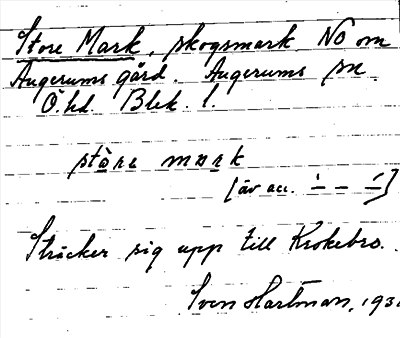 Store Mark, skogsmark NO om
Augerums gård. Augerums sn.
Ö. hd. Blek. l.
stòre mark
[äv acc. –́ – –̀]
Sträcker sig upp till Krokebro.
Sven Hartman, 193